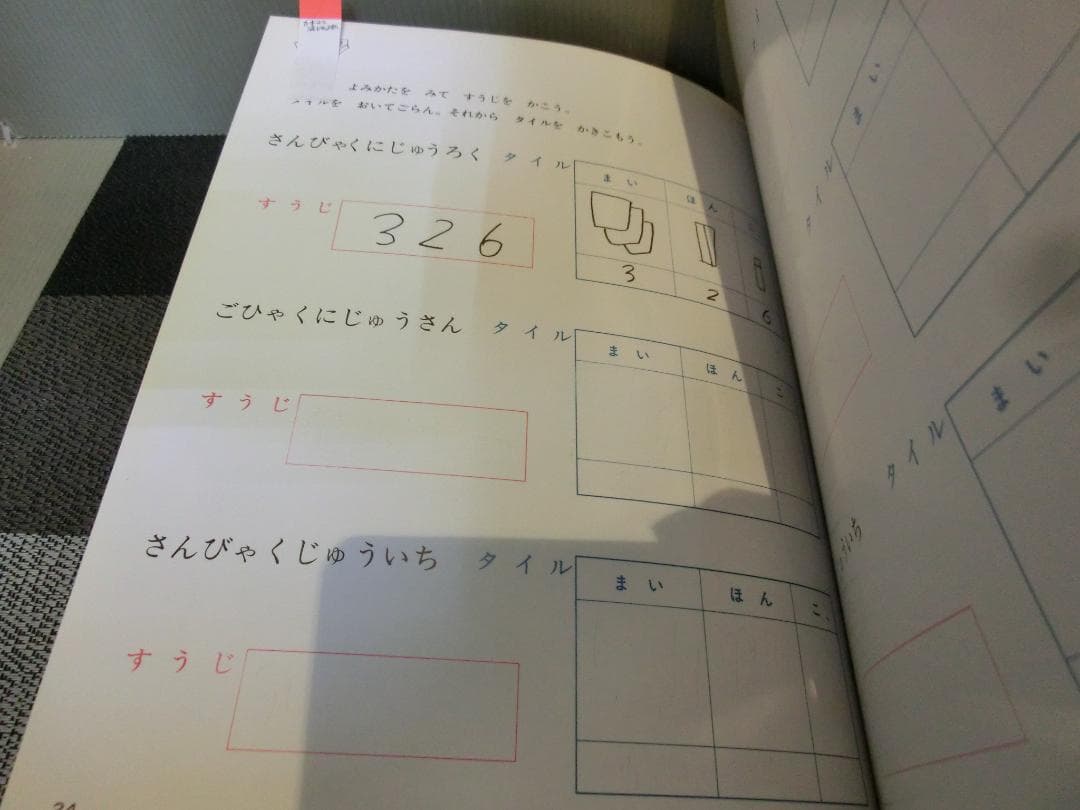 よみかたを みて すうじを かこう。
タイルを おいてごらん。それから タイルを かきこもう。
さんびゃくにじゅうろく タイル
まい ほん こ
すうじ 326
3 2 6
ごひゃくにじゅうさん タイル
まい ほん こ
すうじ
さんびゃくじゅういち タイル
まい ほん こ
すうじ
まい
タイル
まい
タイル
ういち